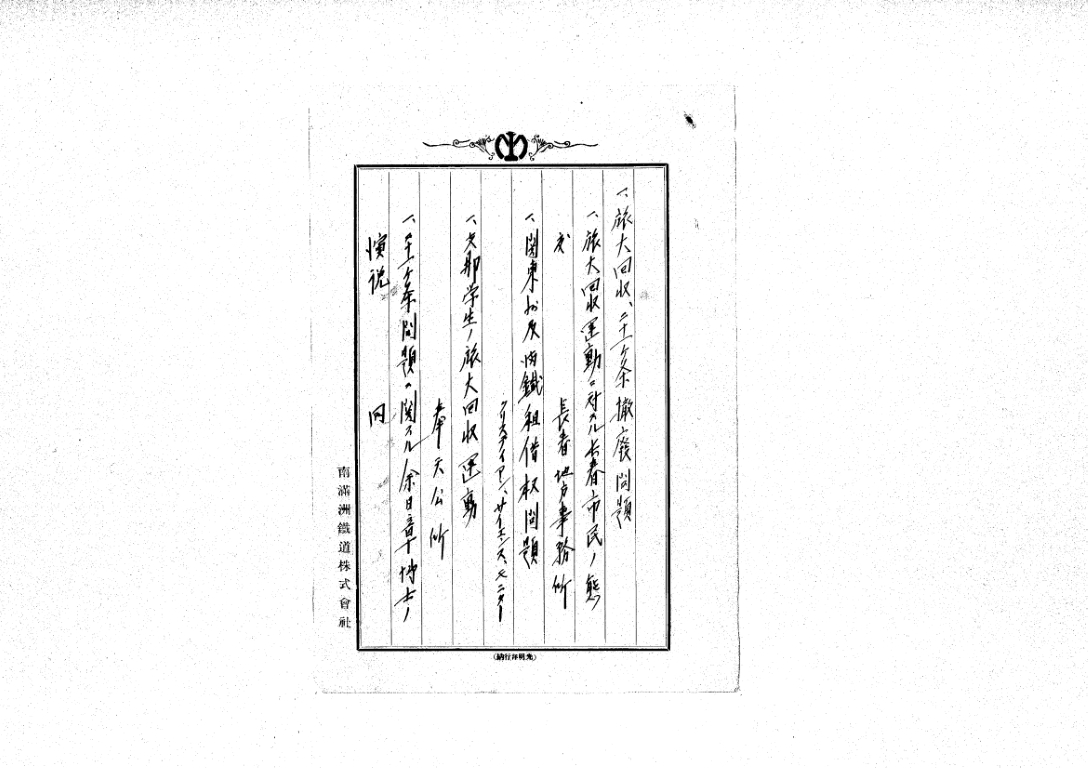 一、旅大回収、二十一ケ条撤廃問題
一、旅大回収運動ニ対スル長春市民ノ態
度　長春地方事務所
一、関東州及満鐵租借权問題
クリスティアン、サイエンス、モニター
一、支那学生ノ旅大回収運動
奉天公所
一、二十一ケ条問題ニ関スル余日章博士ノ
演説　同
南滿洲鐵道株式會社